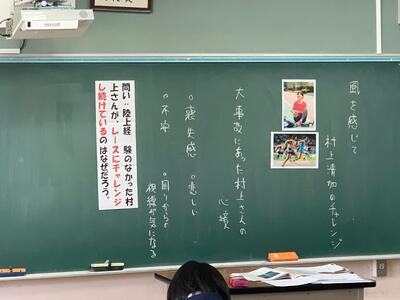 風を感じて
村上清加のチャレンジ
大事故にあった村上さんの
心境
。喪失感 。悲しい
。不安 。周りからの
視線が気になる
問い:陸上経 験のなかった村
上さんが、レースにチャレンジ
し続けているのはなぜだろう。